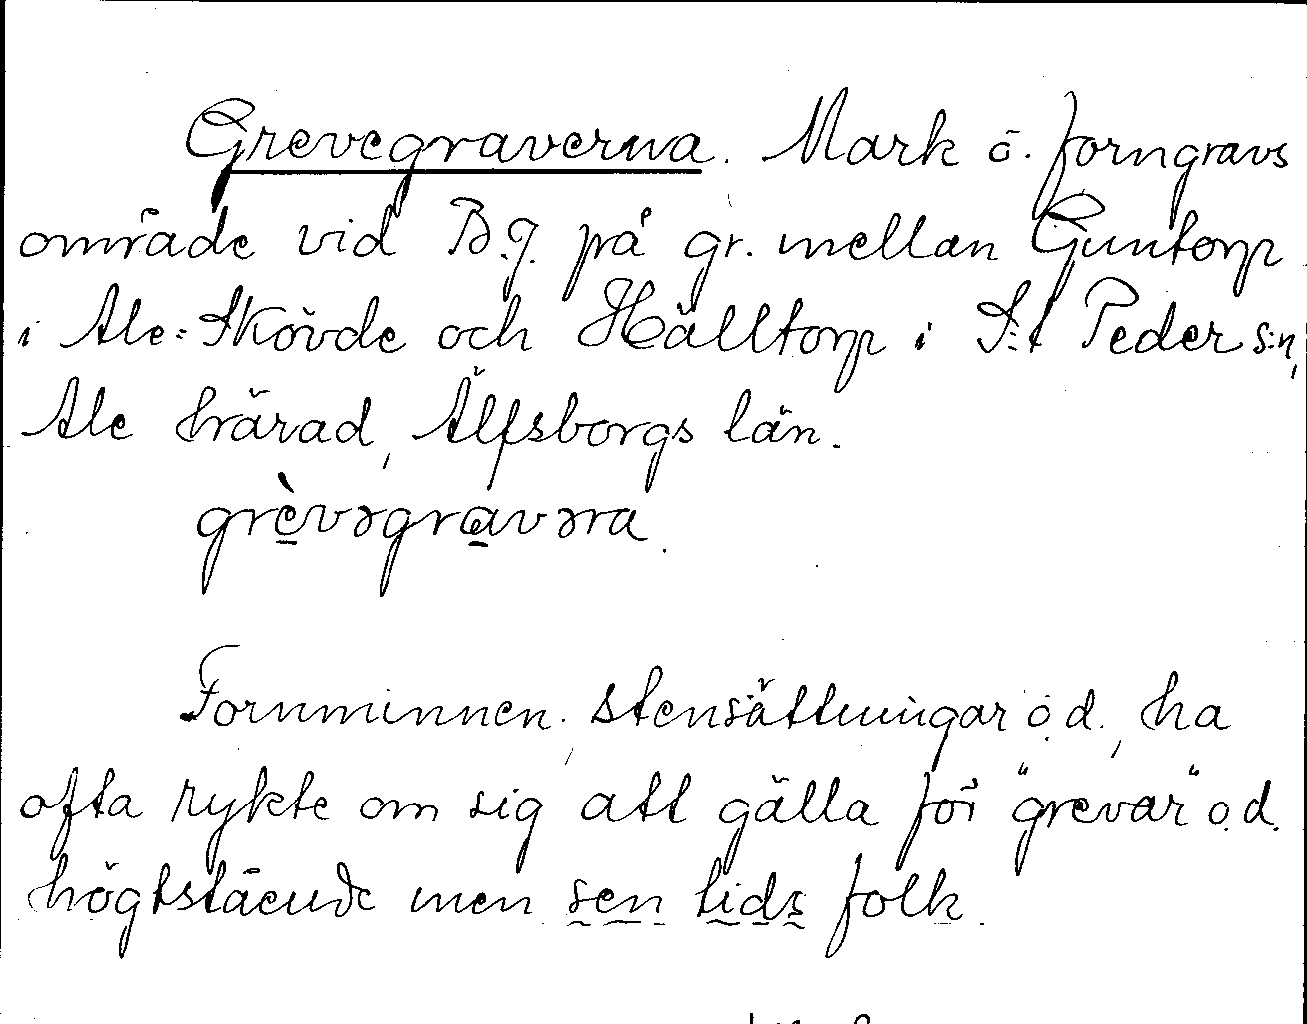 Grevegraverna. Mark o. forngravs
område vid B.G. på gr. mellan Guntorp
i Ale-Skövde och Hälltorp i S:t Peder s:n,
Ale härad, Älfsborgs län.
grèvəgravəra.
Fornminnen, stensättningar o.d., ha
ofta rykte om sig att gälla för "grevar" o.d.
högtstående men sen tids folk.